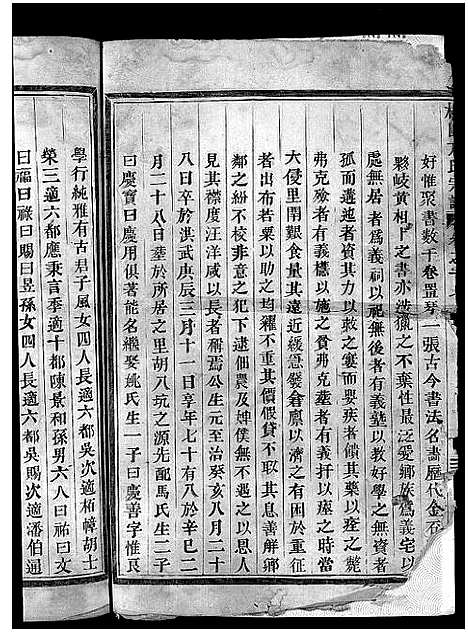 好惟聚書數千卷置琴一張古今書法名畵歷代金石
夥岐黃相卜之書亦涉獵之不棄性最泛愛鄉族爲義宅以
處無居者爲義祠以祀無後者有義塾以教好學之無資
孤而遘逃者資其力以救之窶疾者儲其藥以痊之斃
弗克殮者有義櫬以施之貧弗克塟者有義扦以瘞之時當
大侵里閈艱食量其遠近緩急發倉廩以濟之而於重征
者出布若粟以均之糴不重其價假貸不取其息善解鄉
鄰之紛不校非意之犯下逮佃農及婢僕無不遇之以恩人
見其襟度汪洋咸以長者稱焉公生元至治癸亥八月二十
八日卒於洪武庚辰三月十一日享年七十有八於辛巳二
月二十八日塟於所居之里胡八坑之源先配馬氏生二子
曰慶實曰慶用俱著能名繼娶姚氏生一子曰慶善字惟良
學行純雅有古君子風女四人長適六都吳次適柘幛胡士
榮三適六都應秉言季適十都陳景和孫男六人曰祐曰文
曰福曰祿曰賜曰昱孫女四人長適六都吳賜次適潘伯通